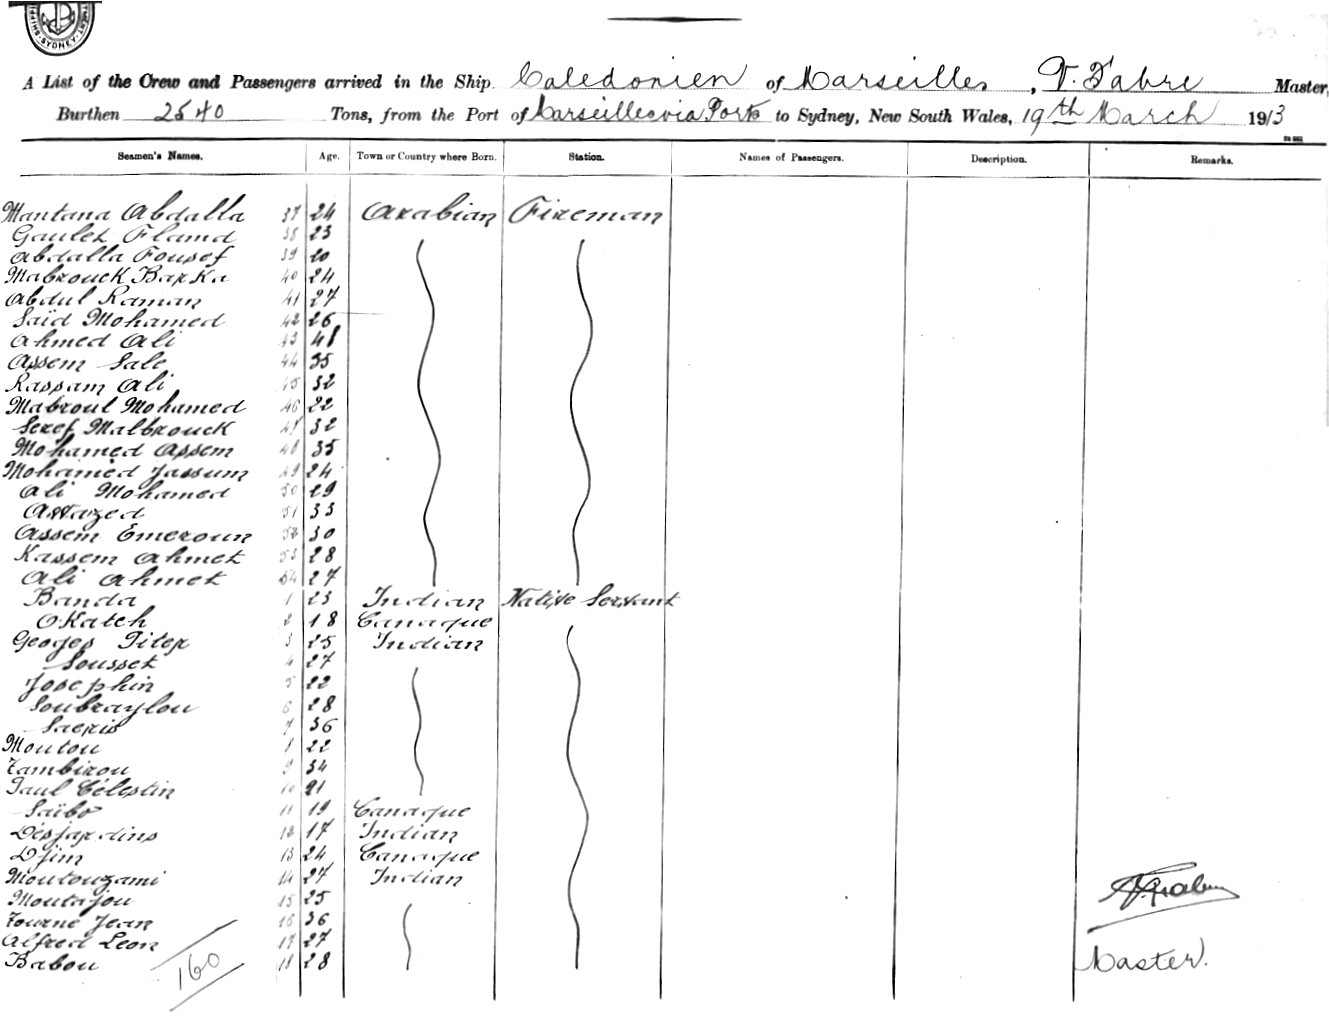 SYDNEY
A List of the Crew and Passengers arrived in the Ship Caledonien of Marseilles, V. Fabre Master,
Burthen 2540 Tons, from the Port of Marseilles via Ports to Sydney, New South Wales, 19th March 1913
Seamen's Names. Age. Town or Country where Born. Station. Names of Passengers. Description. Remarks.
Mantana Abdalla 37 24 Arabian Fireman
Gaulet Flamd 38 23
Abdalla Fousef 39 20
Mabrouck Barka 40 24
Abdul Raman 41 27
Saïd Mohamed 42 26
Ahmed Ali 43 41
Assem Sale 44 35
Rassam Ali 45 32
Mabroul Mohamed 46 22
Seref Malbrouck 47 32
Mohamed Assem 48 35
Mohamed Jassum 49 24
Ali Mohamed 50 29
51 33
Assem Emeroun 52 30
Kassem Ahmet 53 28
Ali Ahmet 54 27
Banda 1 23 Indian Native Servant
OKatch 2 18 Canaque
Georges Piter 3 25 Indian
Sousset 4 27
Josephin 5 22
Soubraylou 6 28
Saeris 7 36
Moutou 8 22
Tambirou 9 34
Paul Célestin 10 21
Saïbo 11 19 Canaque
Desjardins 12 17 Indian
Djim 13 24 Canaque
Moutouzami 14 27 Indian
Moutajou 15 25
Tourne Jean 16 36
Alfred Leon 17 27
Babou 18 28
160
Master.